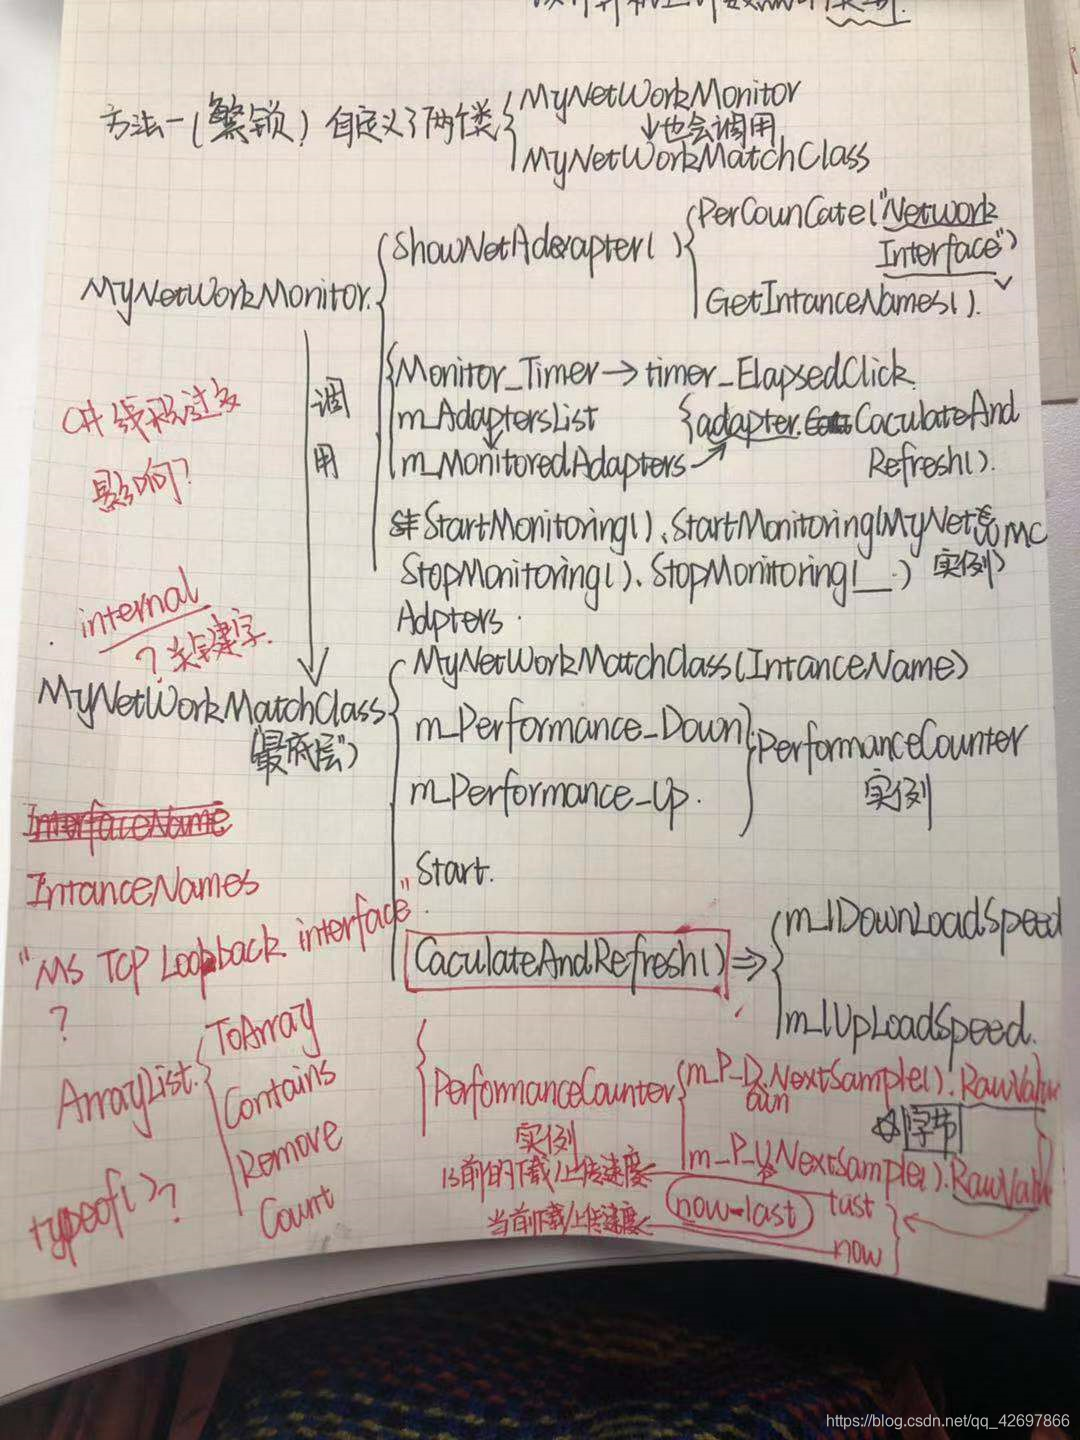 方法一(繁锁) 自定义了两个类
MyNetWorkMonitor
↓也会调用
MyNetWorkMatchClass
MyNetWorkMonitor.
ShowNetAderapter( )
PerCounCate("Network
Interface")
GetIntanceNames().
Monitor_Timer→timer_ElapsedClick.
m_AdaptersList
m_MonitoredAdapters
adapter.CaculateAnd
Refresh().
StartMonitoring()、StartMonitoring(MyNet
MC
实例)
StopMonitoring()、StopMonitoring(__.)
Adpters.
调
用
C#线程过多
影响?
internal
?关键字.
MyNetWorkMatchClass
("最底层")
MyNetWorkMatchClass(IntanceName)
m_Performance_Down
m_Performance_Up.
PerformanceCounter
实例
Start.
CaculateAndRefresh()⇒
m_lDownLoadSpeed
m_lUpLoadSpeed.
InterfaceName
IntanceNames
"MS TCP Loopback interface"
?
ArrayList.
ToArray
Contains
Remove
Count
typeof()?
PerformanceCounter
实例
m_P_D.NextSample().RawValue
own
☆字节
m_P_Up.NextSample().RawValue
1s前的下载/上传速度
last
当前下载/上传速度
now-last
now
https://blog.csdn.net/qq_42697866